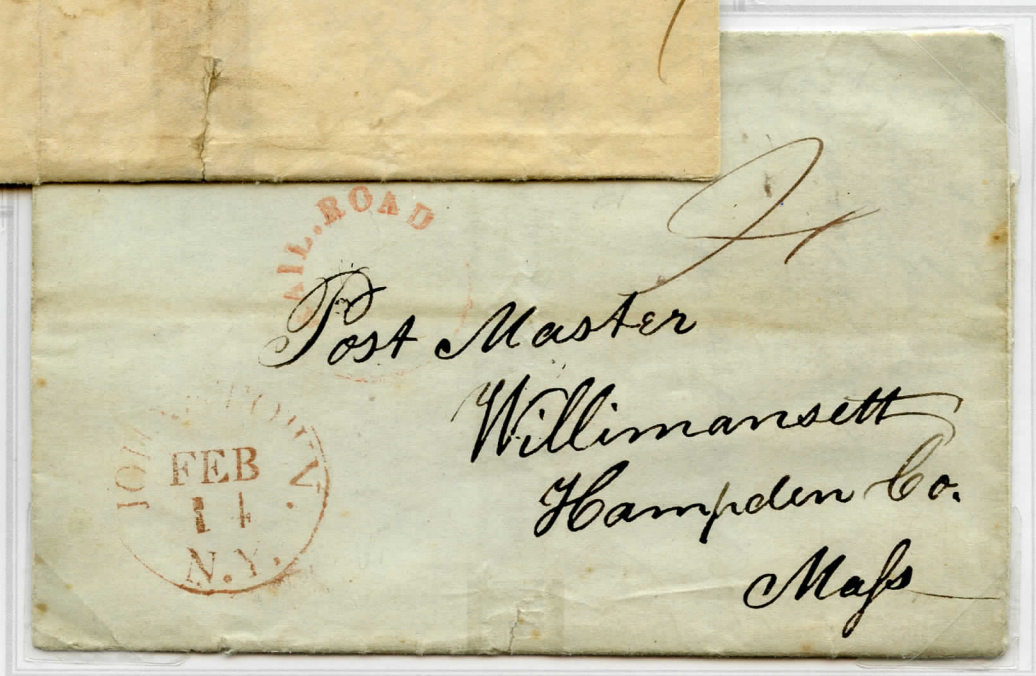 RAIL.ROAD
Post Master
Willimansett
Hampden Co.
Maſs
FEB
14
N.Y.